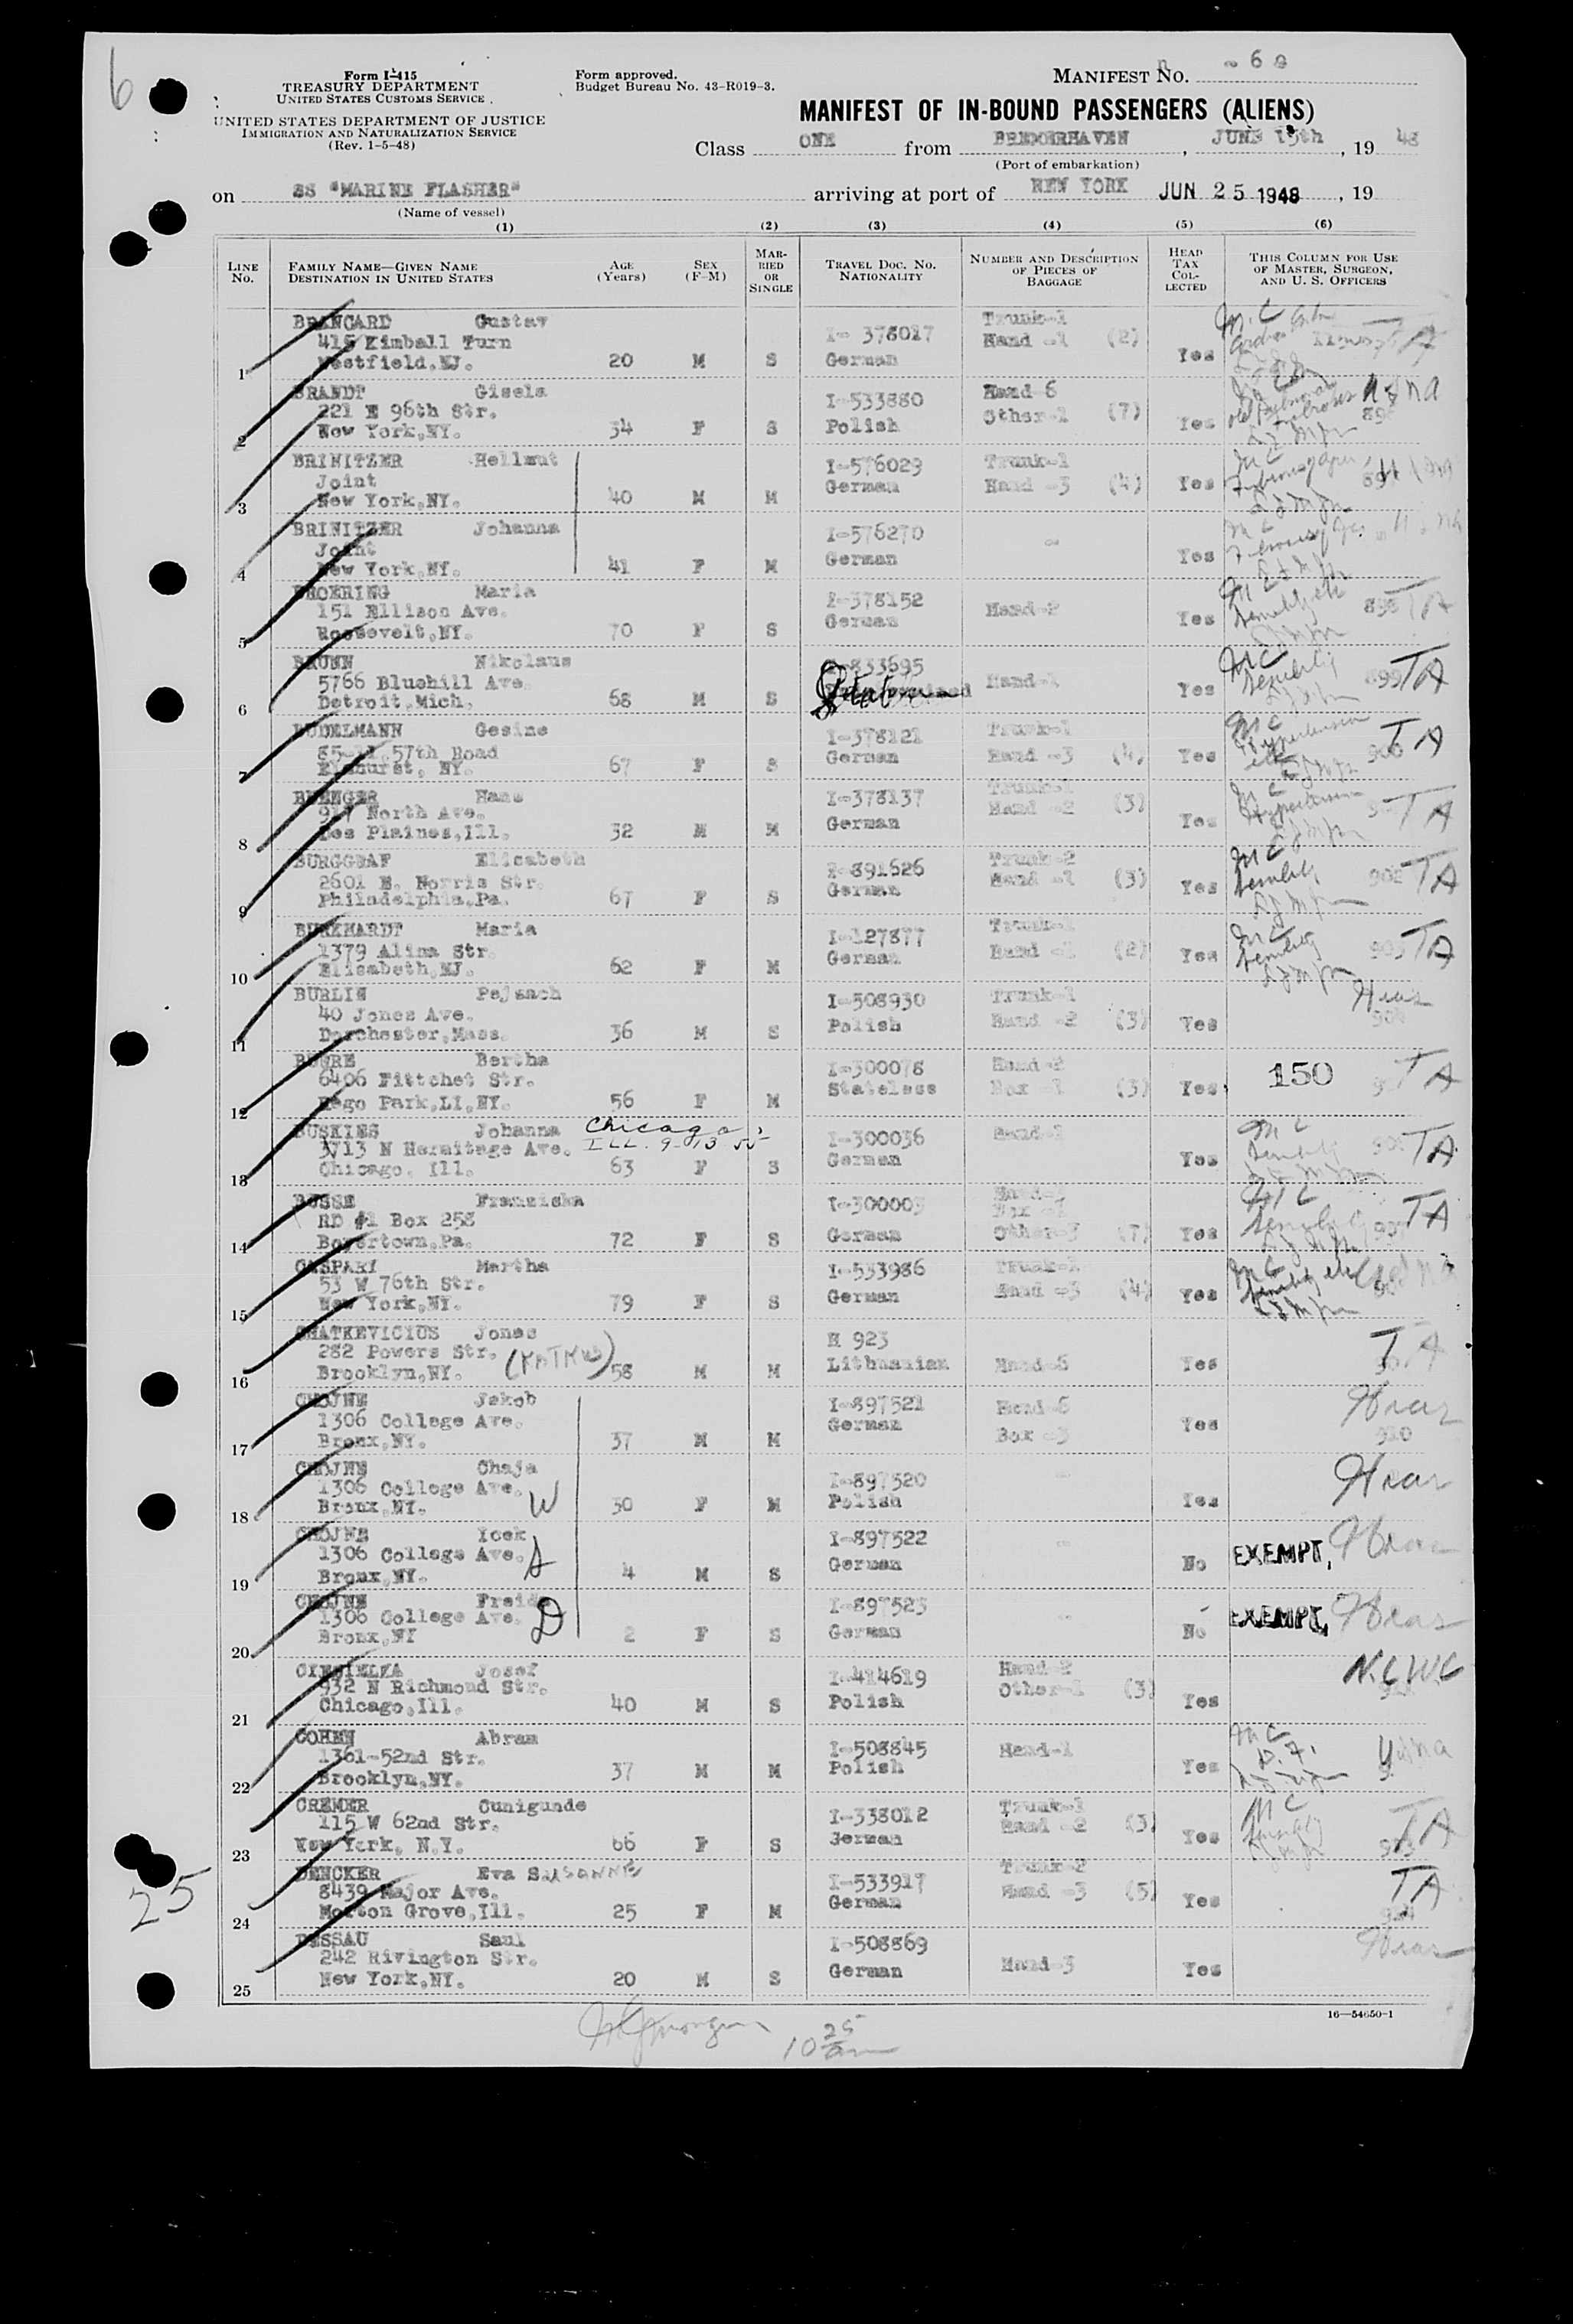 6
Form I-415
TREASURY DEPARTMENT
UNITED STATES CUSTOMS SERVICE
UNITED STATES DEPARTMENT OF JUSTICE
IMMIGRATION AND NATURALIZATION SERVICE
(Rev. 1-5-48)
Form approved.
Budget Bureau No. 43-R019-3.
MANIFEST NO. 6
MANIFEST OF IN-BOUND PASSENGERS (ALIENS)
Class ONE from BREMERHAVEN, JUNE 15th, 19 48
(Port of embarkation)
on SS "MARINE FLASHER" arriving at port of NEW YORK JUN 25 1948, 19
(Name of vessel)
(1) (2) (3) (4) (5) (6)
LINE No. FAMILY NAME—GIVEN NAME DESTINATION IN UNITED STATES AGE (Years) SEX (F-M) MARRIED OR SINGLE TRAVEL DOC. NO. NATIONALITY NUMBER AND DESCRIPTION OF PIECES OF BAGGAGE HEAD TAX COLLECTED THIS COLUMN FOR USE OF MASTER, SURGEON, AND U. S. OFFICERS
BRANCARD Gustav I- 378017 Trunk-1 M.C
415 Kimball Turn Hand -1 (2) TA
1 Westfield,NJ. 20 M S German Yes
BRANDT Gisela I-533880 Hand-6
221 E 96th Str. Other-1 (7)
2 New York,NY. 34 F S Polish Yes
BRINITZER Hellmut I-576029 Trunk-1 MC
Joint German Hand -3 (4)
3 New York,NY. 40 M M Yes
BRINITZER Johanna I-576270
Joint
4 New York,NY. 41 F M German Yes
BROERING Maria I-378152
151 Ellison Ave. German Hand-2 TA
5 Roosevelt,NY. 70 F S Yes
BRUNN Nikolaus I-833695 MC
5766 Bluehill Ave. Hand-1 Senility 899 TA
6 Detroit,Mich. 68 M S Yes
BUDELMANN Gesine I-378121 Trunk-1 MC
85-11 57th Road German Hand -3 (4) Hypertension TA
7 Elmhurst, NY. 67 F S Yes
BUENGER Hans I-378137 Trunk-1 MC
917 North Ave. Hand -2 (3) Hypertension TA
8 Des Plaines,Ill. 32 M M German Yes
BURGGRAF Elisabeth I-891626 Trunk-2 MC
2601 E. Norris Str. German Hand -1 (3) Senility 902 TA
9 Philadelphia,Pa. 67 F S Yes
BURKHARDT Maria I-127877 Trunk-1 MC
1379 Alina Str. German Hand -1 (2) Senility 903 TA
10 Elisabeth,NJ. 62 F M Yes
BURLIN Pejsach I-508930 Trunk-1 Hias
40 Jones Ave. Polish Hand -2 (3) 904
11 Dorchester,Mass. 36 M S Yes
BUURE Bertha I-300078 Hand-2 150 TA
6406 Fittchet Str. Stateless Box -1 (3)
12 Rego Park,LI,NY. 56 F M Yes
BUSKIES Johanna Chicago, I-300036 Hand-1 MC
3713 N Hermitage Ave. ILL. 9-13 55 TA
13 Chicago, Ill. 63 F S German Yes
BUSSE Franziska I-300003 MC
RD #1 Box 258 Box -1 TA
14 Boyertown,Pa. 72 F S German Other-3 (7) Yes 907
CASPARY Martha I-533986 Trunk-1 MC
53 W 76th Str. German Hand -3 (4) Senility etc
15 New York,NY. 79 F S Yes
CHATKEVICIUS Jonas H 923 TA
282 Powers Str. Lithuanian Hand-6
16 Brooklyn,NY. 58 M M Yes
CHOJNE Jakob I-897521 Hand-6 Hias
1306 College Ave. German Box -3 910
17 Bronx,NY. 37 M M Yes
CHOJNE Chaja I-897520 Hias
1306 College Ave. W
18 Bronx,NY. 30 F M Polish Yes
CHOJNE Icek I-897522 EXEMPT, Hias
1306 College Ave.
19 Bronx,NY. 4 M S German No
CHOJNE Freida I-897523 EXEMPT, Hias
1306 College Ave. D
20 Bronx,NY 2 F S German No
CIESIELKA Josef I-414619 Hand-2 NCWC
932 N Richmond Str. Other-1 (3)
21 Chicago,Ill. 40 M S Polish Yes
COHEN Abram I-508845 Hand-1 MC
1361-52nd Str.
22 Brooklyn,NY. 37 M M Polish Yes
CREMER Cunigunde I-338012 Trunk-1 MC
115 W 62nd Str. Hand -2 (3) TA
23 New York, N.Y. 66 F S German Yes
DENCKER Eva SUSANNE I-533917 Trunk-2 TA
8439 Major Ave. German Hand -3 (5)
24 Morton Grove,Ill. 25 F M Yes
DESSAU Saul I-508869 Hias
242 Rivington Str. Hand-3
25 New York,NY. 20 M S German Yes
25
16—54650-1
10 25 am